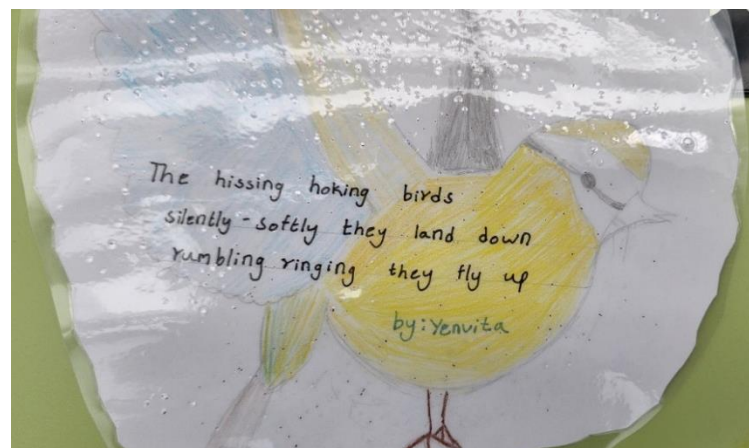 The hissing hoking birds
silently-softly they land down
rumbling ringing they fly up
by: Yenvita